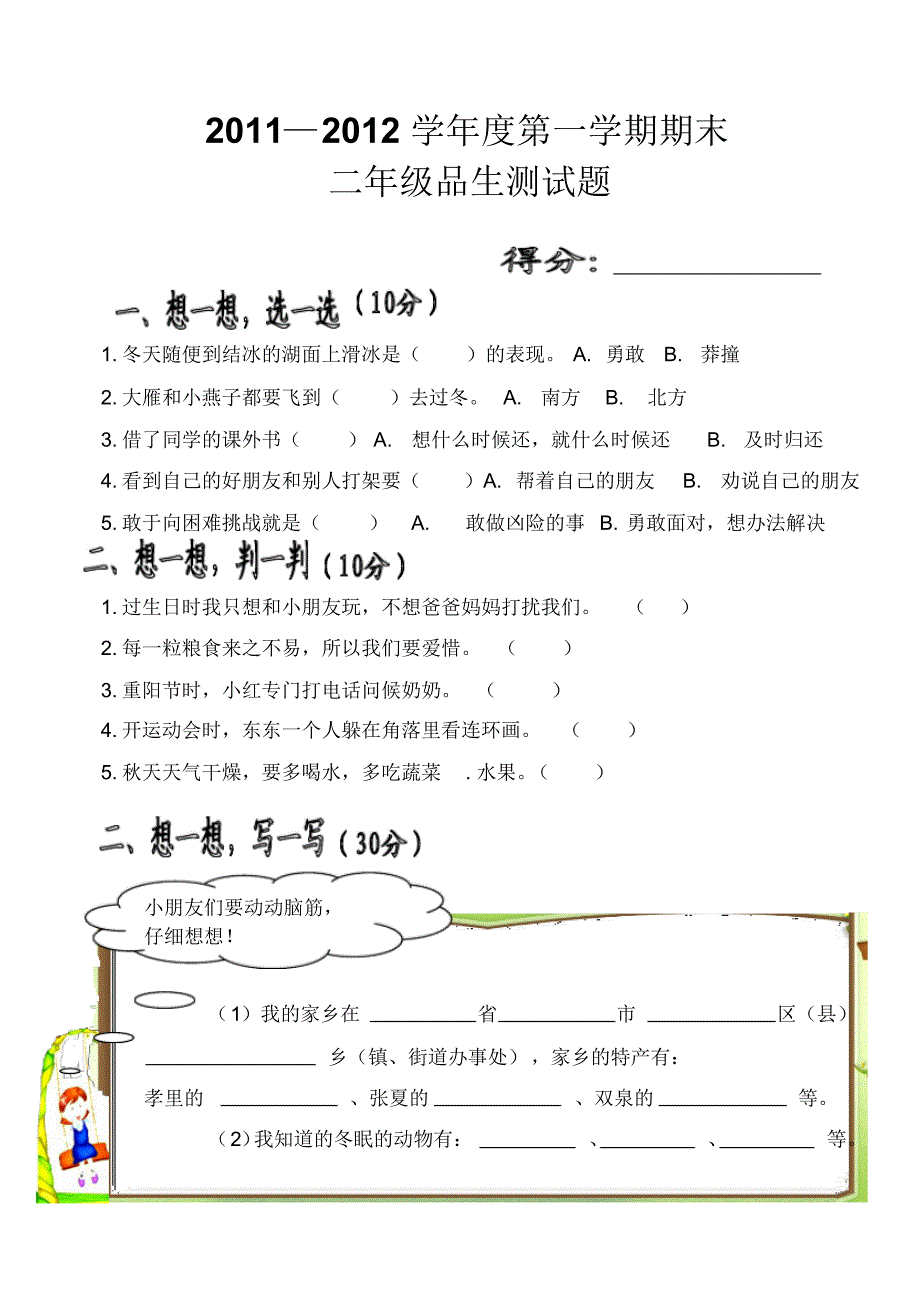 2011—2012 学年度第一学期期末
二年级品生测试题
得分：
一、想一想，选一选（10分）
1. 冬天随便到结冰的湖面上滑冰是（ ）的表现。 A. 勇敢 B. 莽撞
2. 大雁和小燕子都要飞到（ ）去过冬。 A. 南方 B. 北方
3. 借了同学的课外书（ ） A. 想什么时候还，就什么时候还 B. 及时归还
4. 看到自己的好朋友和别人打架要（ ）A. 帮着自己的朋友 B. 劝说自己的朋友
5. 敢于向困难挑战就是（ ） A. 敢做凶险的事 B. 勇敢面对，想办法解决
二、想一想，判一判（10分）
1. 过生日时我只想和小朋友玩，不想爸爸妈妈打扰我们。 （ ）
2. 每一粒粮食来之不易，所以我们要爱惜。 （ ）
3. 重阳节时，小红专门打电话问候奶奶。 （ ）
4. 开运动会时，东东一个人躲在角落里看连环画。 （ ）
5. 秋天天气干燥，要多喝水，多吃蔬菜 . 水果。（ ）
二、想一想，写一写（30分）
小朋友们要动动脑筋，
仔细想想！
（1）我的家乡在 ________ 省 ________ 市 ________ 区（县）
________ 乡（镇、街道办事处），家乡的特产有：
孝里的 ________ 、张夏的 ________ 、双泉的 ________ 等。
（2）我知道的冬眠的动物有： ________ 、 ________ 、 ________ 等。